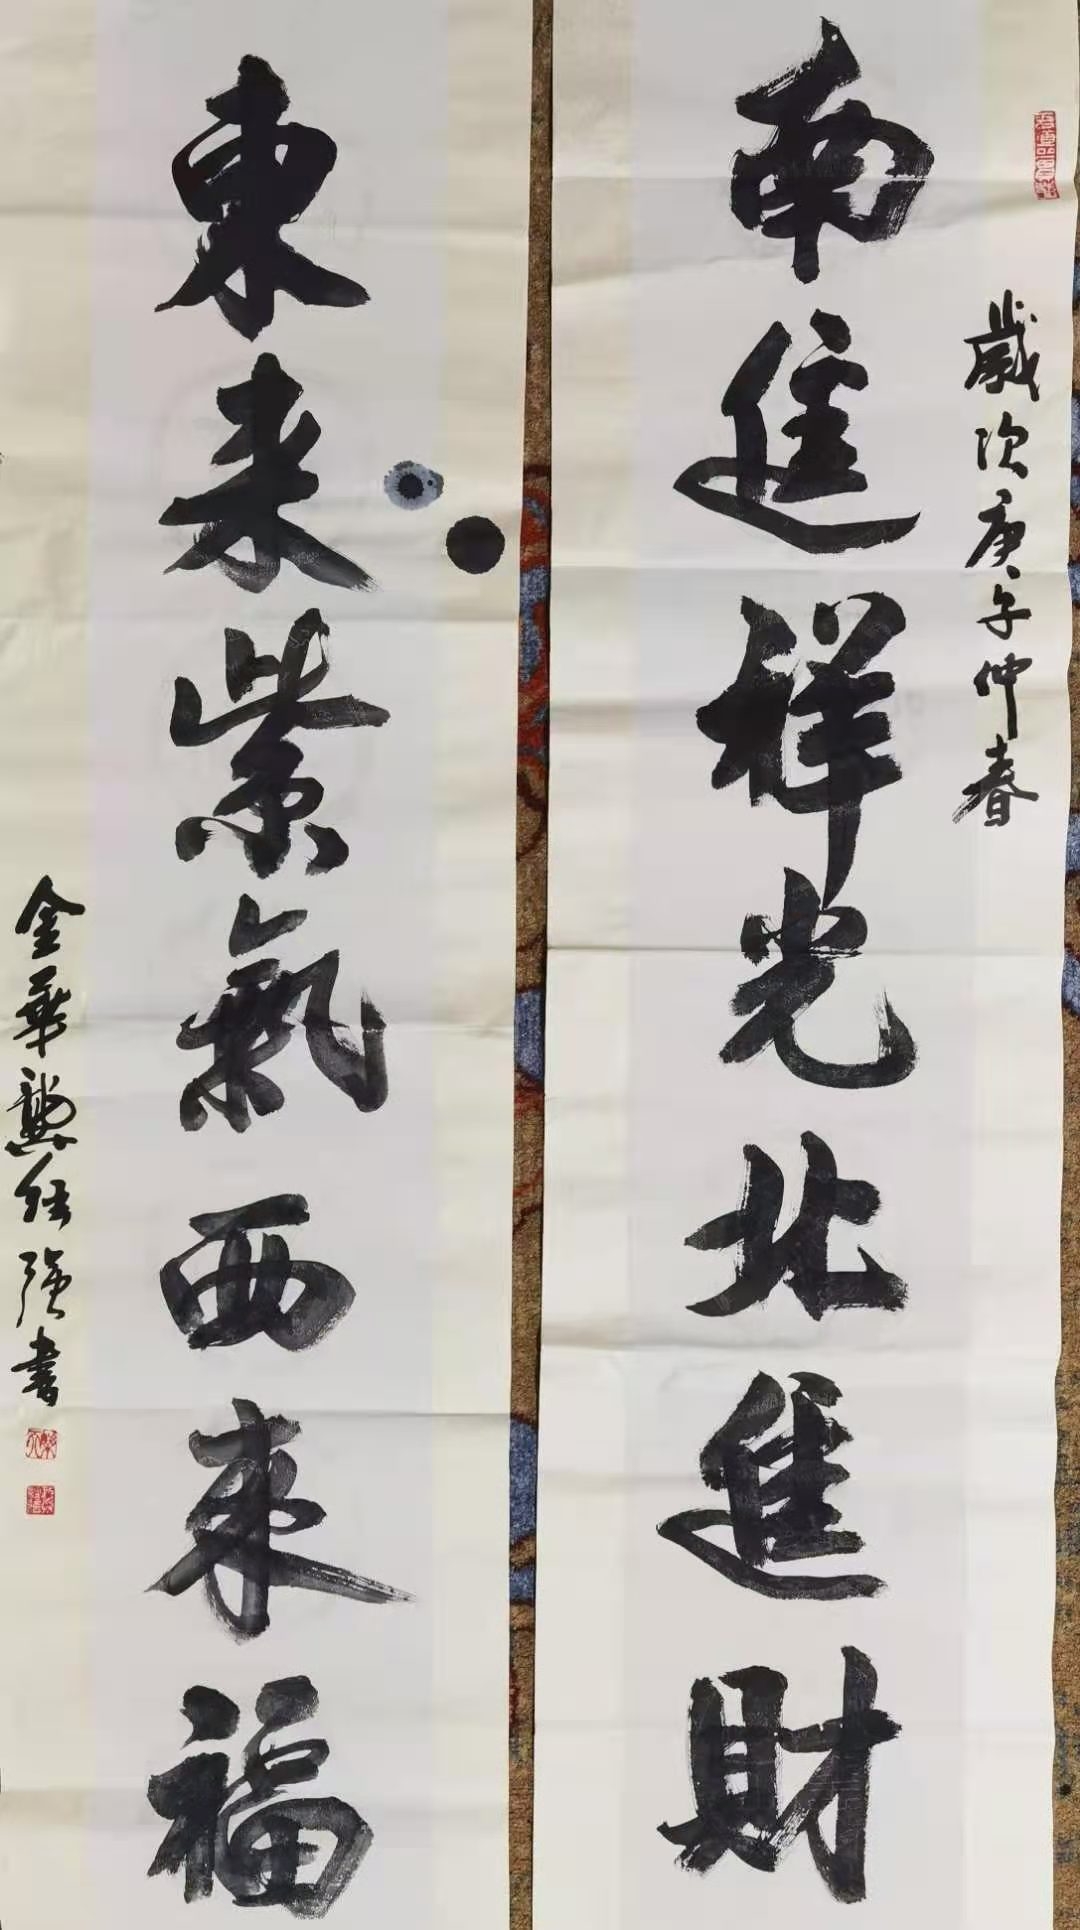 歲次庚子仲春
南進祥光北進財
東来紫氣西来福
金華 经强書